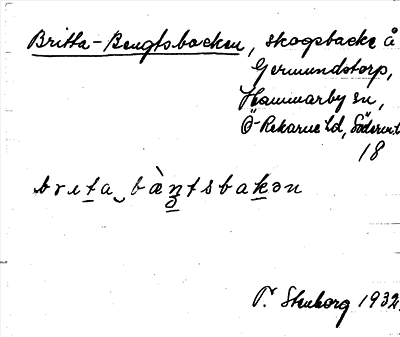 Britta-Bengtsbacken, skogsbacke å
Germundstorp,
Hammarby sn,
Ö-Rekarne hd, Söderm.l.
18
brita bàntsbakən
P. Stenborg 1932.